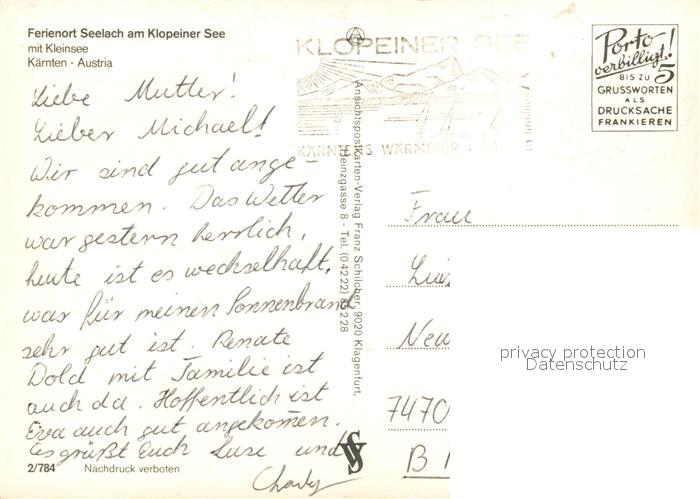 Ferienort Seelach am Klopeiner See
mit Kleinsee
Kärnten - Austria
Liebe Mutter!
Lieber Michael!
Wir sind gut ange-
kommen. Das Wetter
war gestern herrlich,
heute ist es wechselhaft,
was für meinen Sonnenbrand
sehr gut ist. Renate
Dold mit Familie ist
auch da. Hoffentlich ist
Eva auch gut angekommen.
Es grüßt Euch Luse und
Charly
2/784 Nachdruck verboten
KLOPEINER SEE
KÄRNTENS WÄRMSTER
Ansichtspostkarten-Verlag Franz Schilcher, 9020 Klagenfurt,
Heinzgasse 8 - Tel. (04222) 83228
Porto
verbilligt!
BIS ZU 5
GRUSSWORTEN
ALS
DRUCKSACHE
FRANKIEREN
Frau
7470
privacy protection
Datenschutz